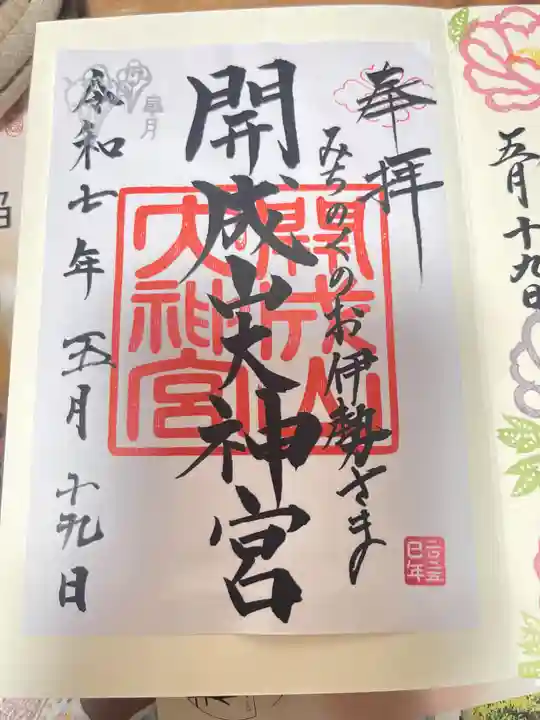 五月十九日
奉拝
みちのくのお伊勢さま
開成山大神宮
開成山
大神宮
皐月
令和七年五月十九日
二〇二五
巳年